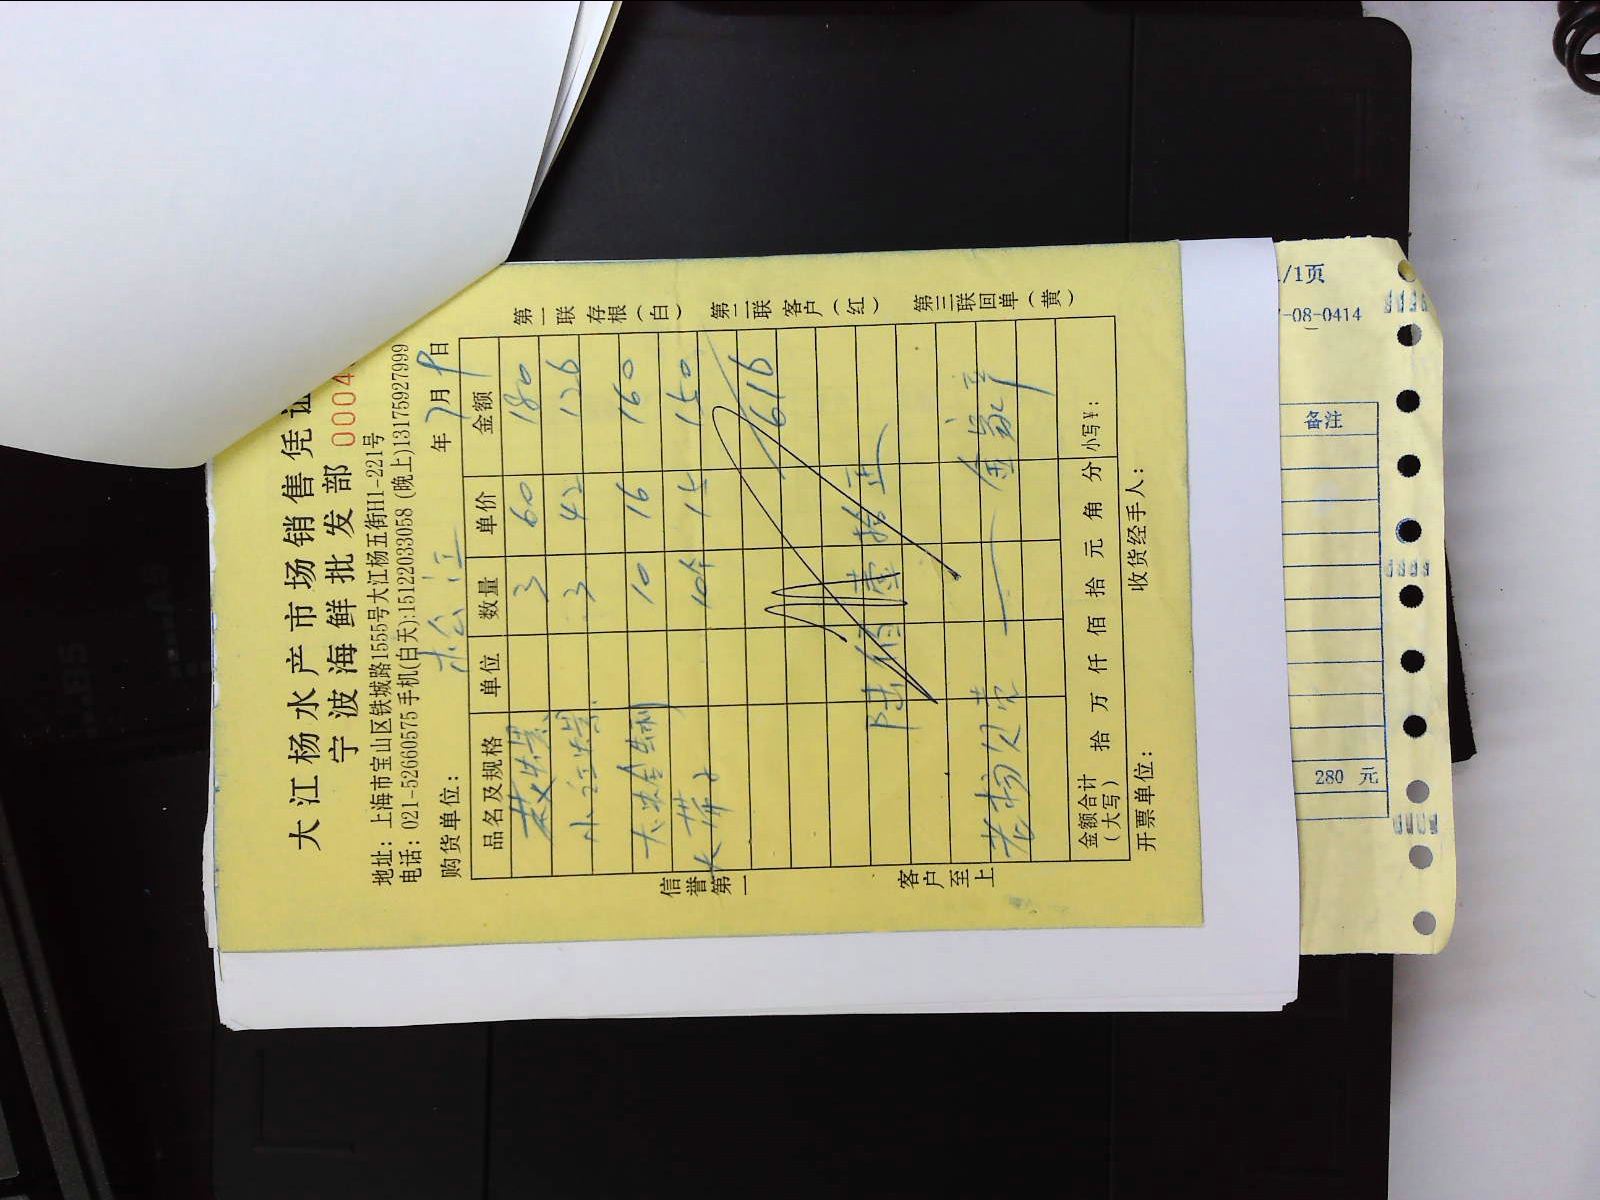 大江杨水产市场销售凭证
宁波海鲜批发部 0004
地址：上海市宝山区铁城路1555号大江杨五街H1-221号
电话：021-52660575 手机(白天):15122033058 (晚上)13175927999
购货单位： 松江 年 7月 9日
品名及规格 单位 数量 单价 金额
3 60 180
小红 3 42 126
大 10 16 160
大 10个 15 150
616
陆佰壹拾 正
老 金家辛
金额合计（大写） 拾 万 仟 佰 拾 元 角 分 小写￥：
开票单位： 收货经手人：
信誉第一
客户至上
第一联 存根（白） 第二联 客户（红） 第三联回单（黄）
/1页
-08-0414
备注
280 元